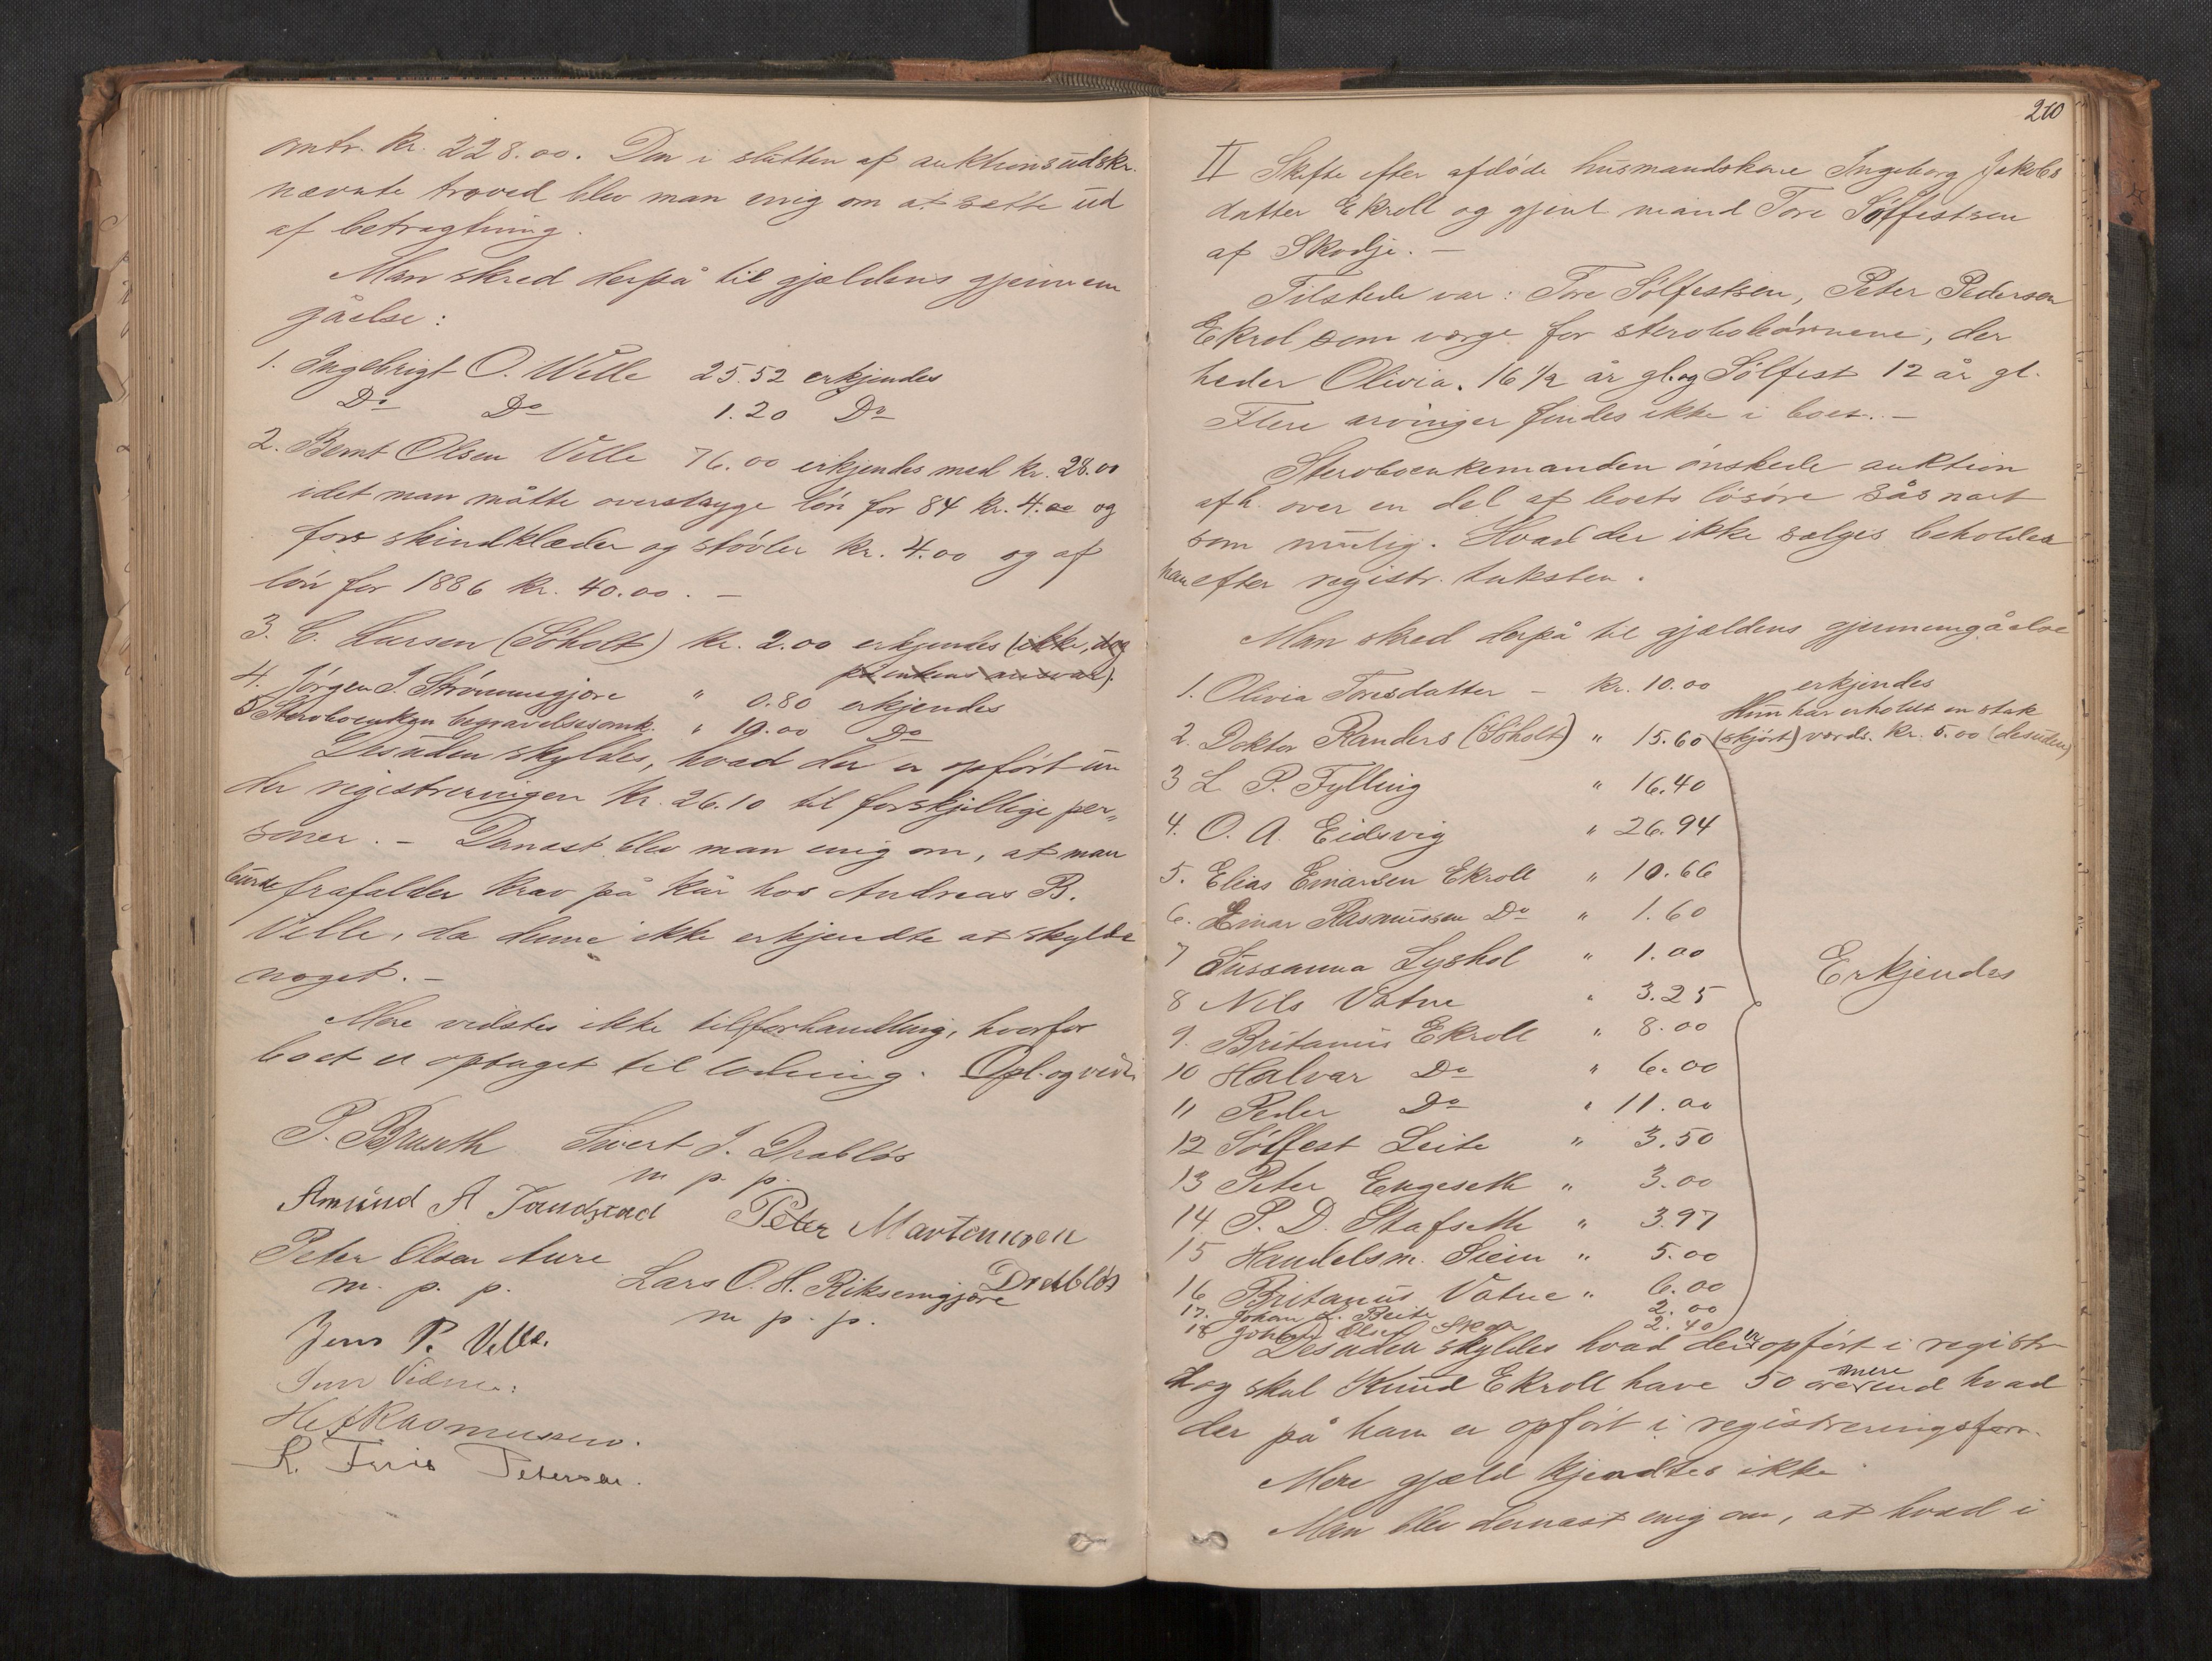 omtr. Kr. 228.00. Den i slutten af auktionsudskr.
nævnte træved blev man enig om at sætte ud
af betragtning.
Man skred derpå til gjældens gjennem
gåelse:
1. Ingebrigt O. Welle 25.52 erkjendes
Do Do 1.20 Do
2. Bernt Olsen Velle 76.00 erkjendes med kr. 28.00
idet man måtte overstryge løn for 84 kr. 4.00 og
for skindklæder og støvler kr. 4.00 og af
løn for 1886 kr. 40.00. –
3. C. Larsen (Søholt) kr. 2.00 erkjendes (ikke, dog
ansvar).
4. Jørgen J. Strømmegjære " 0.80 erkjendes
5 Sterboenken begravelsesomk. " 19.00 Do
Desuden skyldes, hvad der er opført un
der registreringen kr. 26.10 til forskjellige per„
soner. – Dernæst blev man enig om, at man
burde frafalder krav på kår hos Andreas B.
Velle, da denne ikke erkjendte at skylde
noget. –
Mere vidstes ikke til forhandling, hvorfor
boet er optaget til lodning. Opl. og vedt.
P. Bruseth Sivert J. Drabløs
m p. p.
Amund A Tandstad Peter Martenusen
Drabløs
Peter Olsen Aure Lars O. H. Riksemgjære
m. p. p. m p. p.
Jens P. Velle.
Rasmussen.
Petersen.
260
II Skifte efter afdøde husmandskone Ingeborg Jakobs
datter Ekroll og gjenl mand Tore Sølfestsen
af Skodje. –
Tilstede var: Tore Sølfestsen, Peter Pedersen
Ekrol som værge for sterbobørnene, der
heder Olivia. 16 1/2 år gl. og Sølfest 12 år gl.
Flere arvinger findes ikke i boet. –
Sterboenkemanden ønskede auktion
afh. over en del af boets løsøre såsnart
som mulig. Hvad der ikke sælges beholder
han efter registr. taksten.
Man skred derpå til gjældens gjennemgåelse
1. Olivia Toresdatter – kr. 10.00 erkjendes
Hun har erholdt en stak
2. Doktor Randers (Søholt) " 15.60 (skjørt) værds. kr. 5.00 (desuden)
3 L P. Fylling " 16.40
4. O. A. Eidsvig " 26.94
5. Elias Einarsen Ekroll " 10.66
6. Einar Rasmussen Do " 1.60
7 Sussanna Lyshol " 1.00
Erkjendes
8 Nils Vatne " 3.25
9. Britanus Ekroll " 8.00
10 Halvar Do " 6.00
11 Peder Do " 11.00
12 Sølfest Leite " 3.50
13 Peter Engeseth " 3.00
14 P. D. Stafseth " 3.97
15 Handelsm. Stein " 5.00
16 Britanus Vatne " 6.00
17. Johan L. Beite 2.00
18 Johan Olsen 2.40
Desuden skyldes hvad der er opført i registr
dog skal Knud Ekroll have 50 øre mere end hvad
der på ham er opført i registreringsforr.
Mere gjæld kjendtes ikke
Man blev dernæst enig om, at hvad i